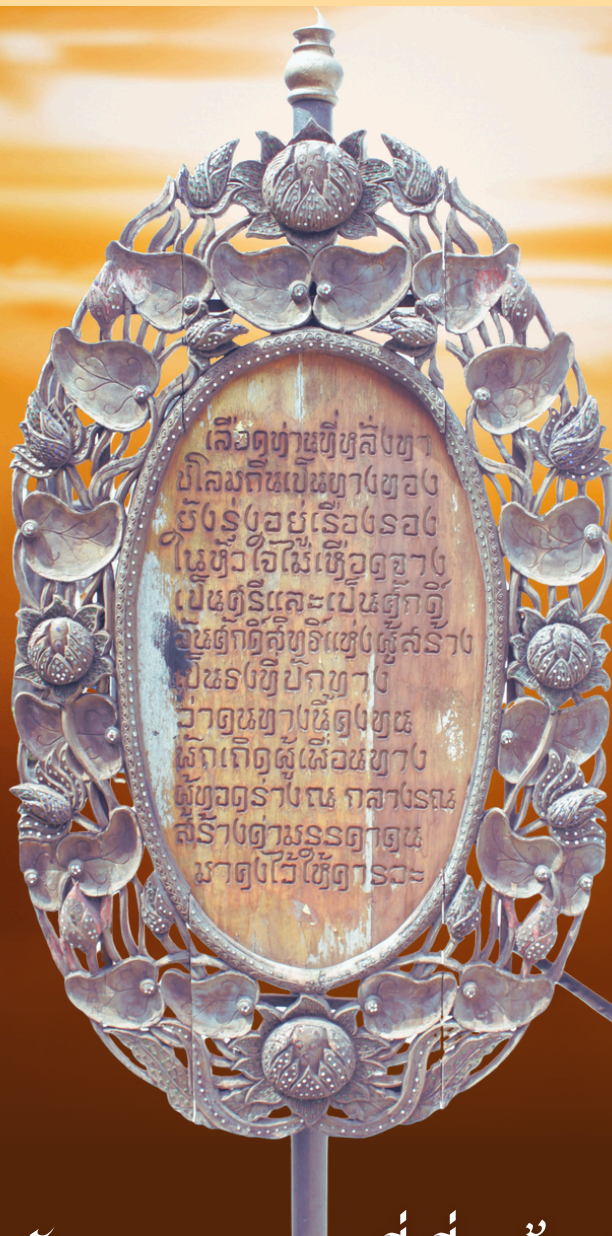 เลือดท่านที่หลั่งทา
ชโลมถิ่นเป็นทางทอง
ยังรุ่งอยู่เรืองรอง
ในหัวใจไม่เหือดจาง
เป็นศรีและเป็นศักดิ์
อันศักดิ์สิทธิ์แห่งผู้สร้าง
เป็นธงที่ปักทาง
ว่าคนทางนี้คงทน
พักเถิดผู้เพื่อนทาง
ผู้ทอดร่างณ กลางรณ
สร้างค่ามรรคาคน
มาคงไว้ให้คารวะ